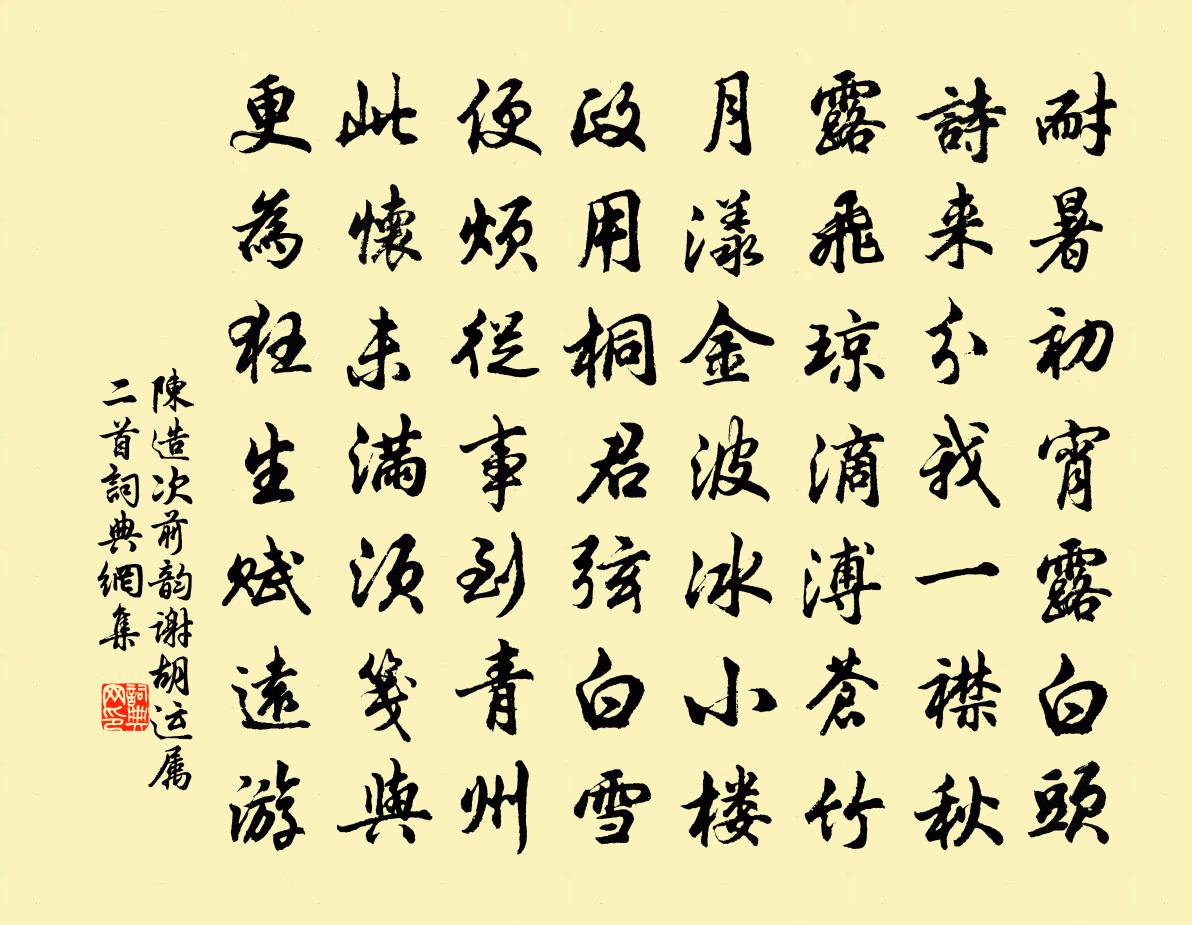 耐暑初宵露白頭
詩来分我一襟秋
露飛琼滴溥蒼竹
月漾金波冰小楼
政用桐君弦白雪
便煩従事到青州
此懷未满须箋與
更為狂生赋遠游
陳造次前韵谢胡运属
二首詞典網集
詞典网印